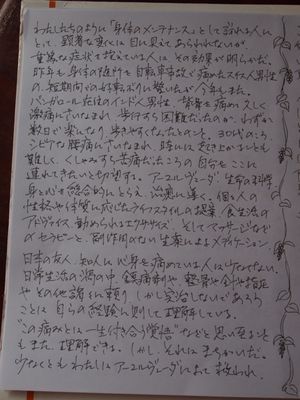 わたしたちのように「身体のメンテナンス」として訪れる人に
とって 顕著な変化は目に見えてあらわれないが、
重篤な症状を抱えている人には その効果が明らかだ。
昨年も 身体の
の 短期間での好転ぶりに驚いたが 今年もまた。
バンガロール在住のインド人男性、背骨を病め 久しく
激痛にさいなまれ 歩行すら困難だったのが、わずか
数日で楽になり 歩きやすくなったとのこと。30代のころ、
シビアな腰痛にさいなまれ 時には起き上がることも
難しく くしゃみすら苦痛だったころの自分を ここに
連れてきたいと切望する。アーユルヴェーダ 生命の科学
身と心を総合的にとらえ 治癒に導く。個々人の
性格や体質に応じたライフスタイルの提案 食生活の
アドヴァイス 勧められるエクササイズ そしてマッサージなど
のセラピーと、副作用のない生薬によるメディケーション。
日本の友人、知人に心身を病めている人は少なくない。
日常生活の渦の中 鎮痛剤や、整骨や針や指圧
や その他諸々に頼り しかし完治しないであろう
ことは 自らの経験に則して理解している。
"この痛みとは一生付き合う覚悟" などと思い至ること
もまた、理解できる。しかし、それはまちがいだ。
少なくとも わたしはアーユルヴェーダによって救われ、